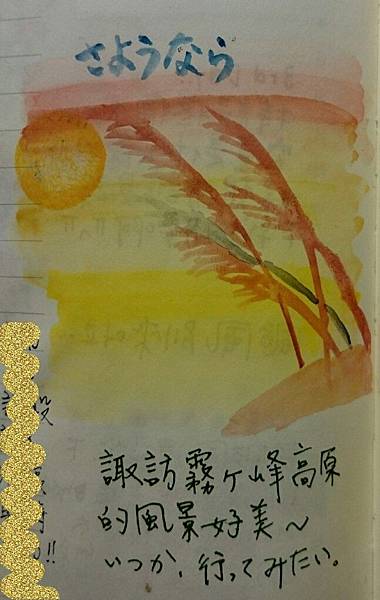 さようなら
諏訪霧ヶ峰高原
的風景好美～
いつか、行ってみたい。